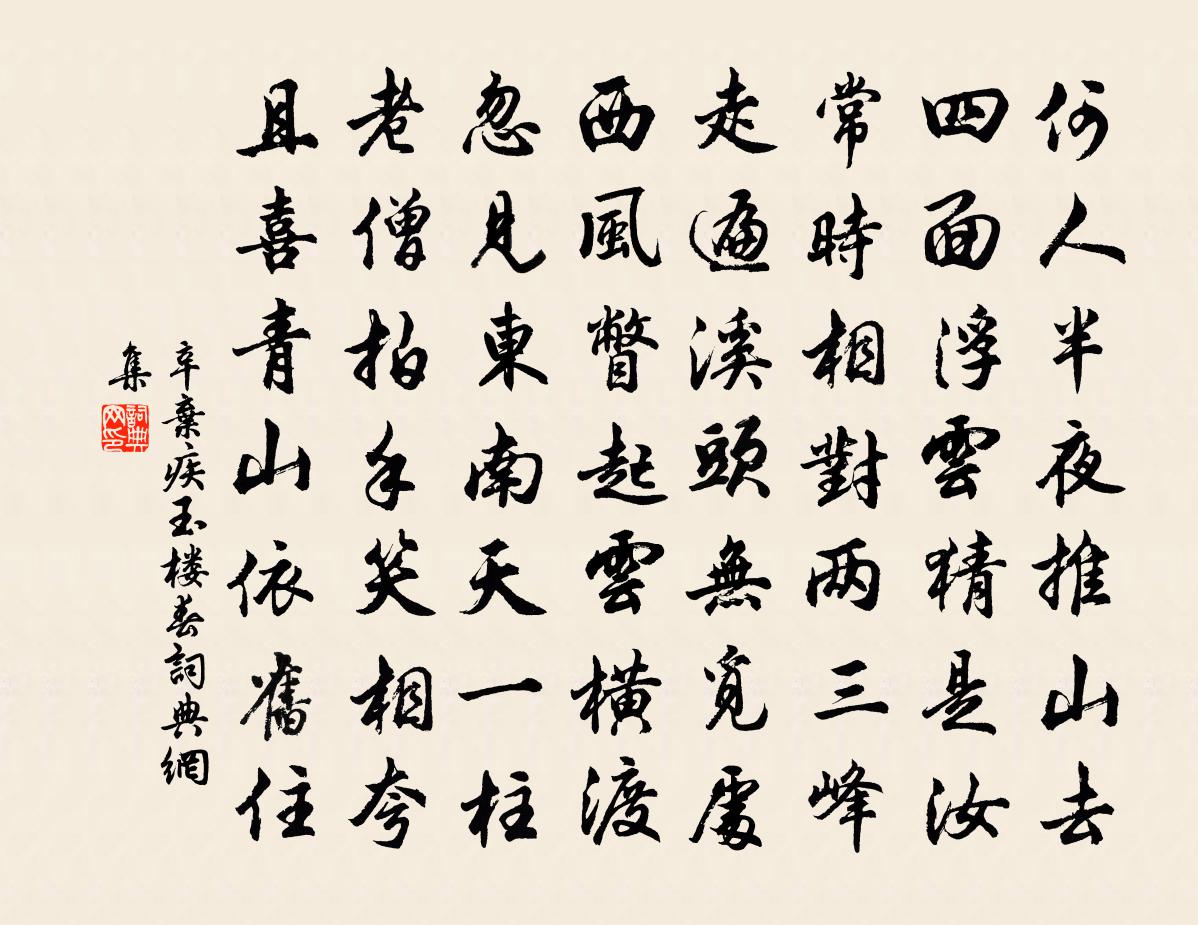 何人半夜推山去
四面浮雲猜是汝
常時相對两三峰
走遍溪頭無覓處
西風瞥起雲橫渡
忽見東南天一柱
老僧拍手笑相夸
且喜青山依舊住
辛棄疾玉楼春詞典網
集
詞典网印